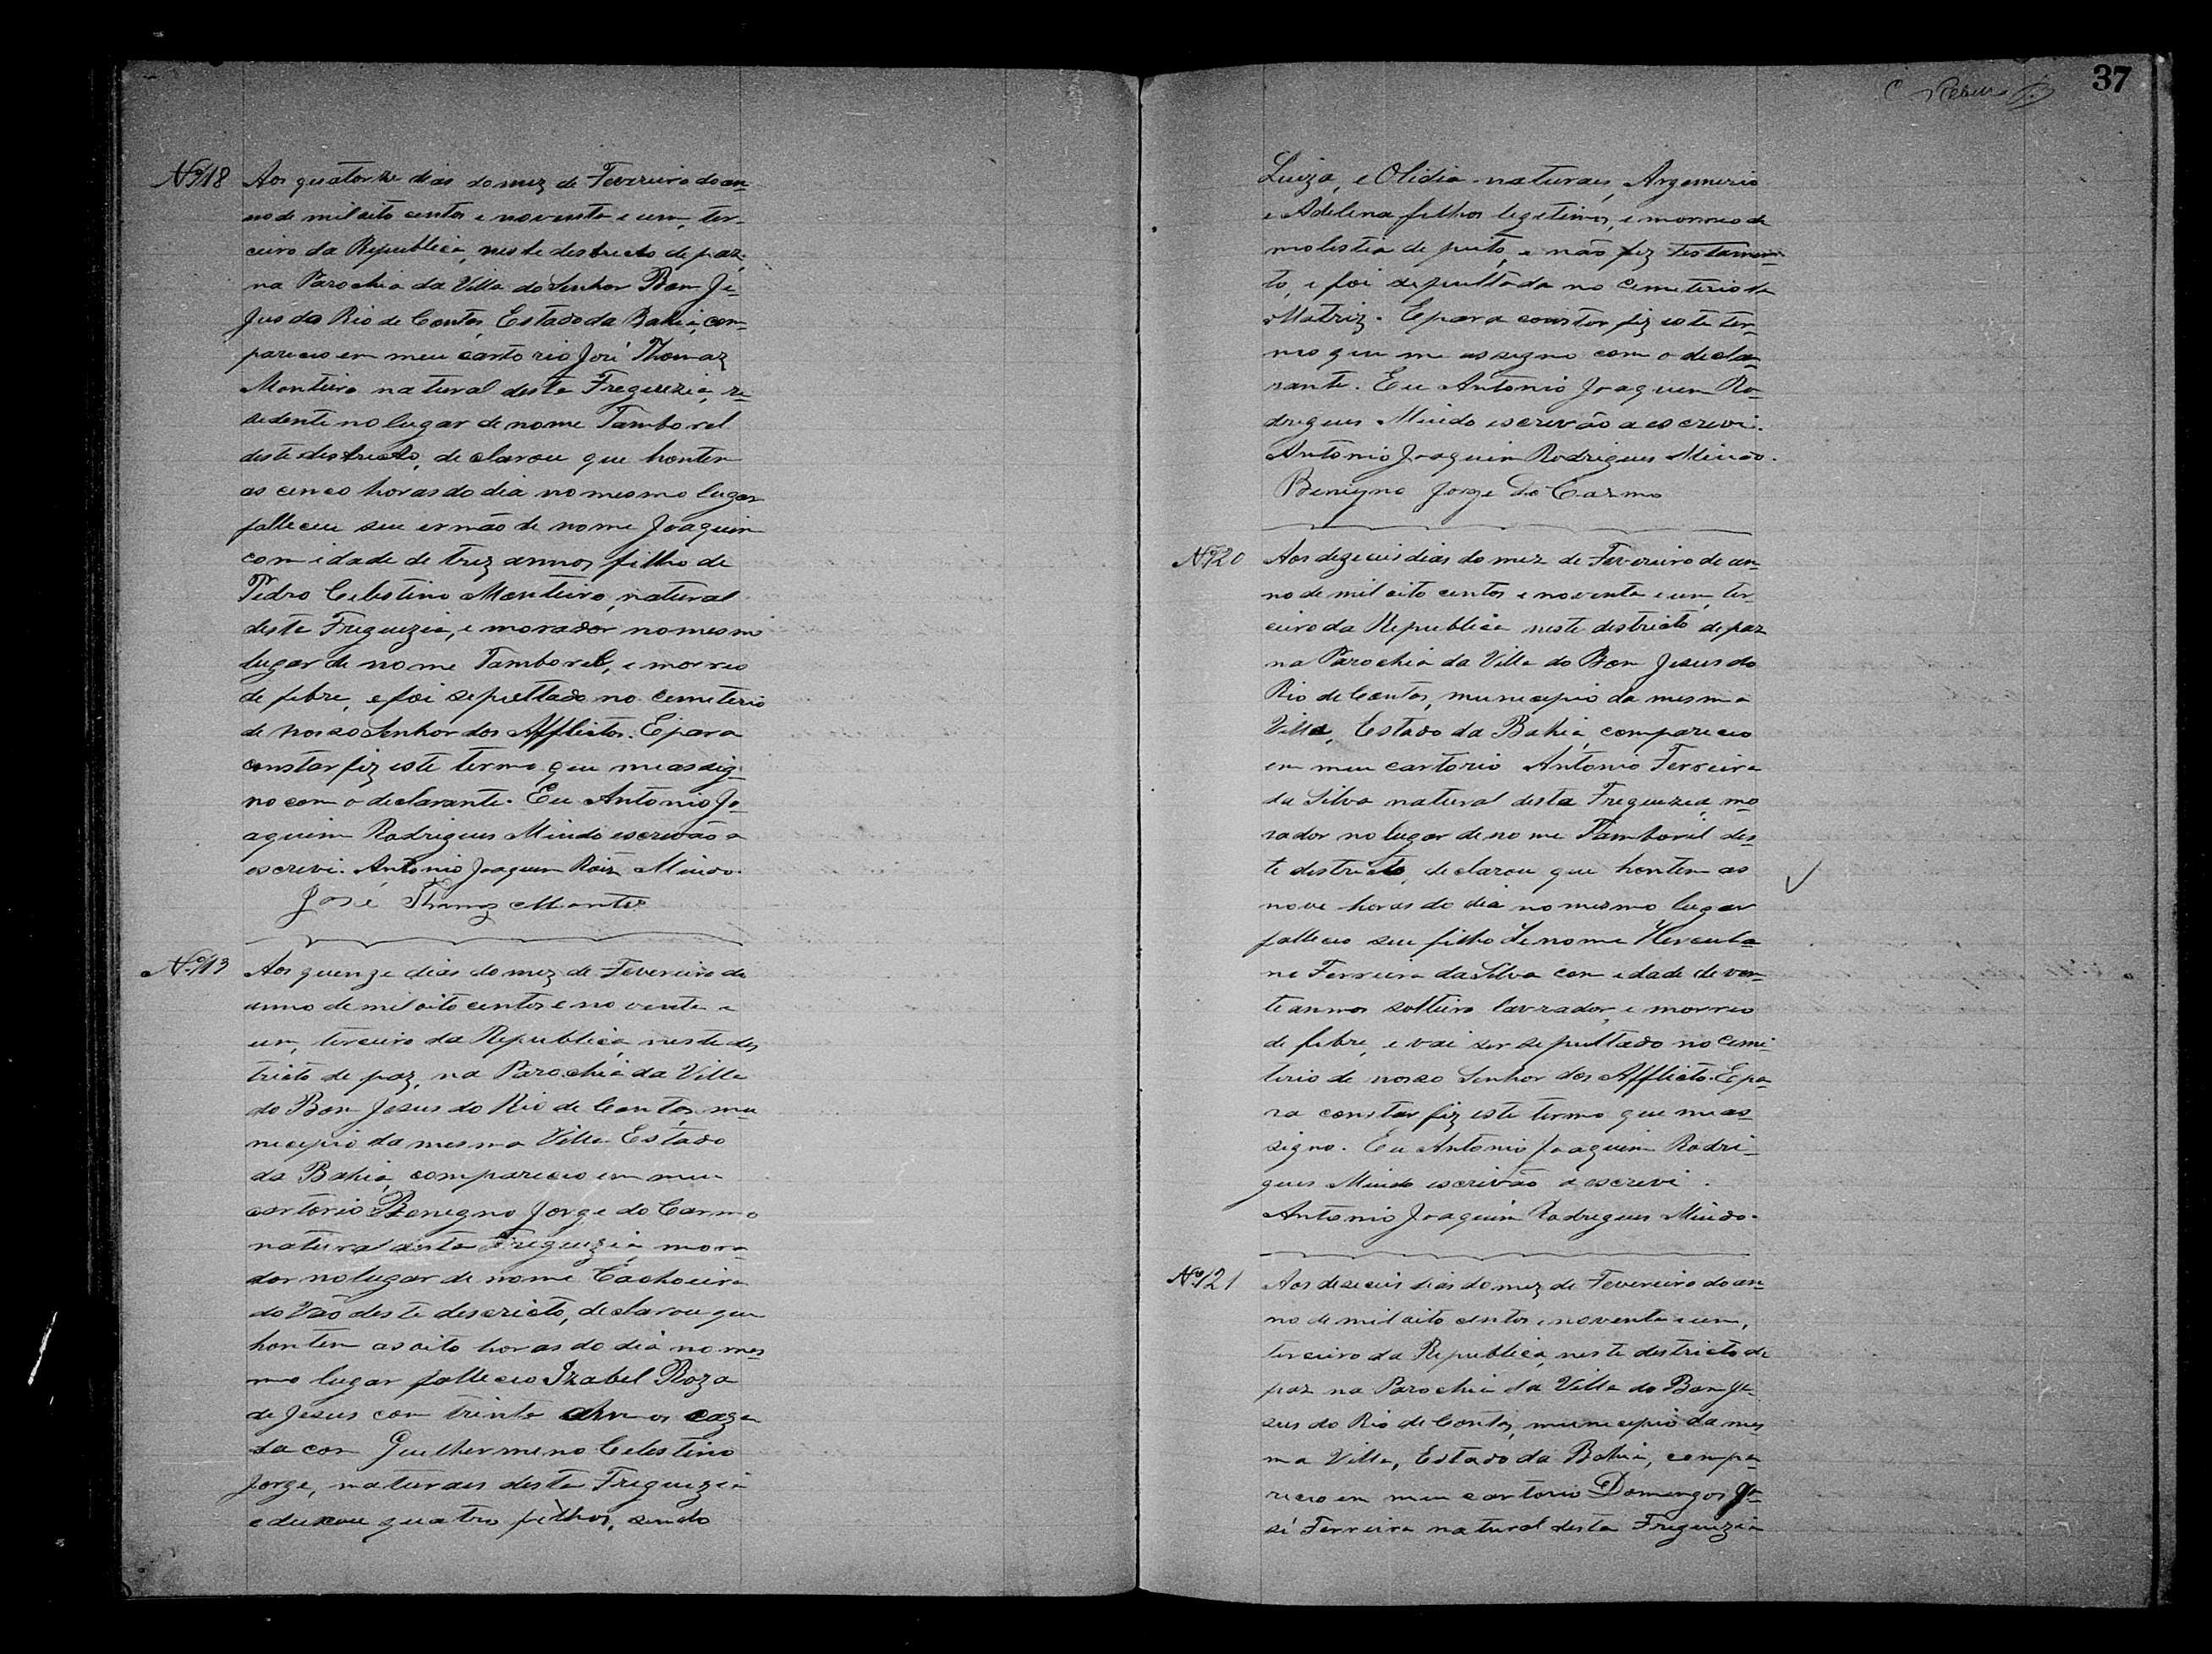 37
Nº 118 Aos quatorze dias do mez de Fevereiro do an-
no de mil oito centos e noventa e um, ter-
ceiro da Republica, neste destricto de paz,
na Parochia da Villa do Senhor Bom Je-
sus do Rio de Contas, Estado da Bahia, com-
pareceo em meu cartorio José Thomaz
Monteiro natural desta Freguezia, re-
sedente no lugar de nome Tamboril
deste destricto, declarou que hontem
as cinco horas do dia no mesmo lugar
falleceu seu ermão de nome Joaquim
com idade de trez annos filho de
Pedro Celestino Monteiro, natural
desta Freguezia, e morador no mesmo
lugar de nome Tamboril, e morreo
de febre, e foi sepultado no cemeterio
de nosso Senhor dos Afflictos. E para
constar fiz este termo que me assig-
no com o declarante. Eu Antonio Jo-
aquim Rodrigues Miudo escrivão a
escrevi. Antonio Joaquim Roiz Miudo.
José Thomaz Monteiro
Nº 119 Aos quenze dias do mez de Fevereiro do
anno de mil oito centos e noventa e
um, terceiro da Republica, neste des
tricto de paz, na Parochia da Villa
do Bom Jesus do Rio de Contas, mu
necepio da mesma Villa Estado
da Bahia, compareceo em meu
cartorio Benegno Jorge do Carmo
natural desta Freguezia, mora
dor no lugar de nome Cachoeira
do Vão deste descricto, declarou que
hontem as oito horas do dia no mes
mo lugar falleceo Izabel Roza
de Jesus com trinta annos caza
da com Guelhermeno Celestino
Jorge, naturaes desta Freguezia
e deixou quatro filhos, sendo
Luiza, e Olidia naturaes, Argemerio
e Adelina filhos legetimos, e morreo de
molestia de peito, e não fez testamen-
to, e foi sepultada no Cemeterio da
Matriz. E para constar fiz este ter-
mo que me assigno com o decla-
rante. Eu Antonio Joaquim Ro-
drigues Miudo escrevão a escrevi.
Antonio Joaquim Rodrigues Miudo.
Benigno Jorge do Carmo
Nº 120 Aos dezeceis dias do mez de Fevereiro do an-
no de mil oito centos e noventa e um, ter-
ceiro da Republica neste destricto de paz
na Parochia da Villa do Bom Jesus do
Rio de Contas, municepio da mesma
Villa, Estado da Bahia, compareceo
em meu cartorio Antonio Ferreira
da Silva natural desta Freguezia, mo
rador no lugar de nome Tamboril des-
te destricto, declarou que hontem as
nove horas do dia no mesmo lugar
falleceo seu filho de nome Herculа-
no Ferreira da Silva com edade de ven-
te annos solteiro lavrador, e morreo
de febre, e vai ser sepultado no Ceme-
terio de nosso Senhor dos Afflictos. E pa-
ra constar fiz este termo que me as-
signo. Eu Antonio Joaquim Rodri-
gues Miudo escrivão a escrevi.
Antonio Joaquim Rodrigues Miudo.
Nº 121 Aos deseceis dias do mez de Fevereiro do an-
no de mil oito centos e noventa e um,
terceiro da Republica, neste destricto de
paz na Parochia da Villa do Bom Je-
sus do Rio de Contas, municepio da mes
ma Villa, Estado da Bahia, compa-
receo em meu cartorio Domingos Jo-
sé Ferreira natural desta Freguezia